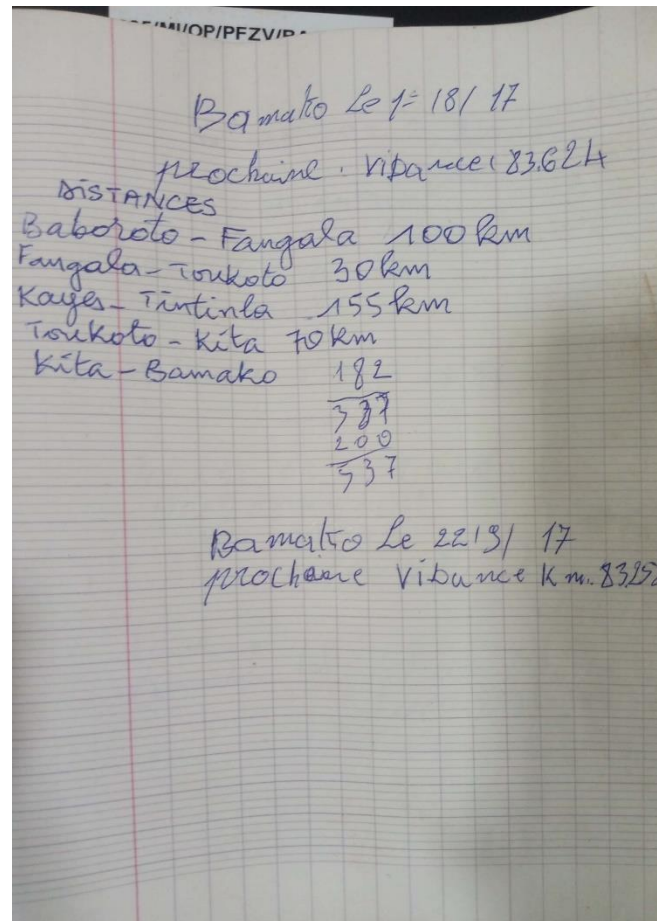 /MI/OP/PFZV/BA
Bamako Le 1= 18/ 17
prochaine. vibance 83.624
DISTANCES
Baboroto - Fangala 100 km
Fangala - Toukoto 30 km
Kayes - Tintinba 155 km
Toukoto - Kita 70 km
Kita - Bamako 182
337
200
537
Bamako Le 22/9/ 17
prochaine Vibance Km. 8325